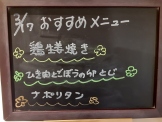 3/17 おすすめメニュー
鶏生姜焼き
ひき肉とごぼうの卵とじ
ナポリタン